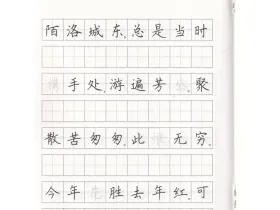 陌洛城东。总是当时
手处，游遍芳。聚
散苦匆匆，此无穷。
今年胜去年红。可